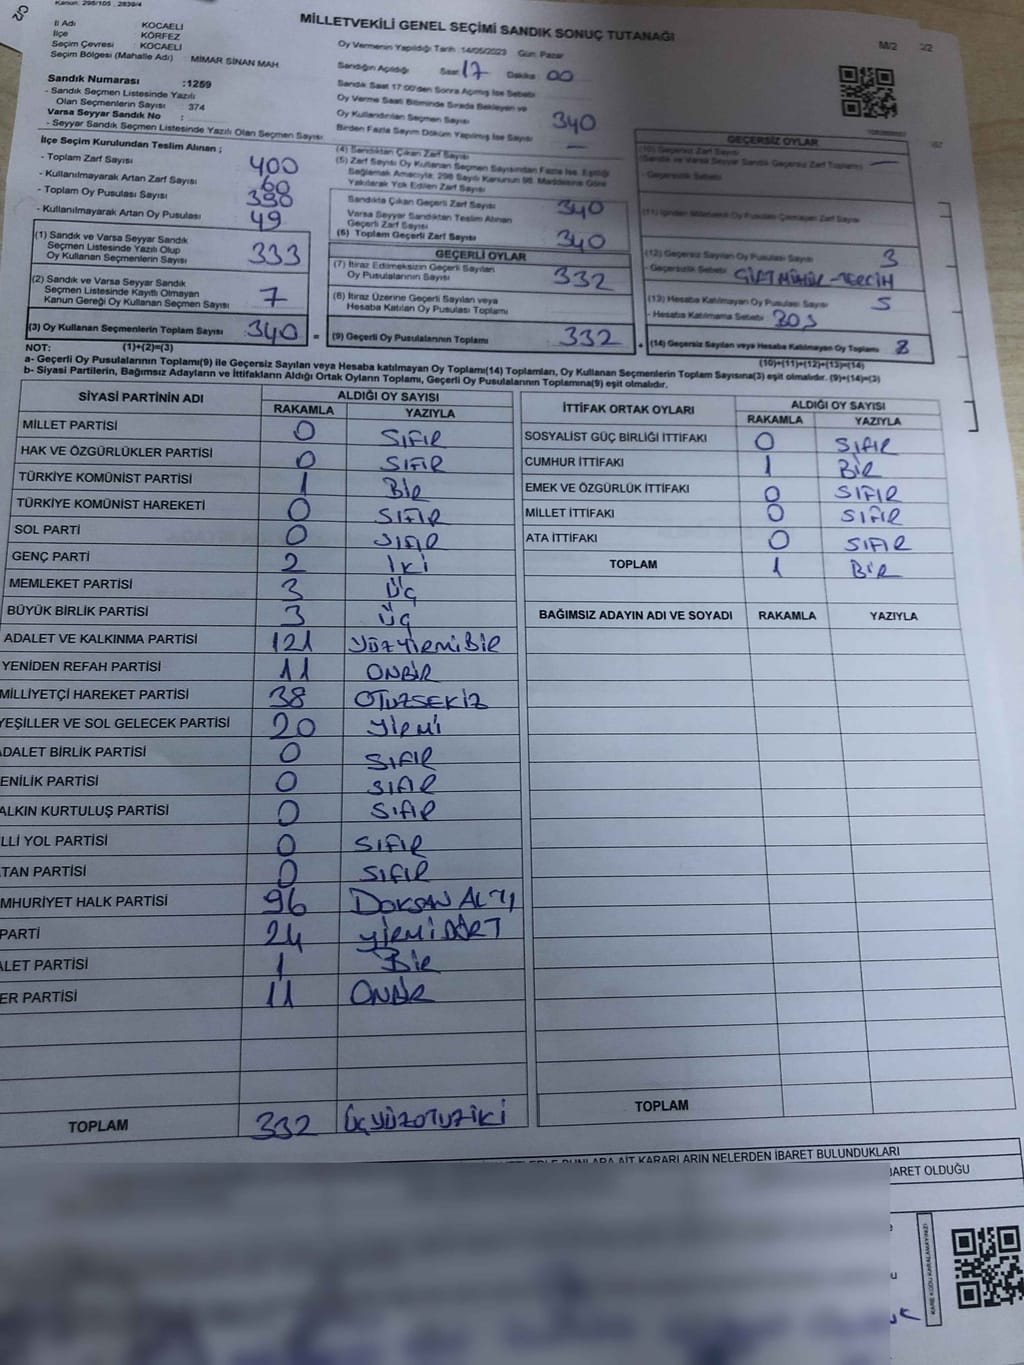 Kanun: 298/105 , 2839/4
MİLLETVEKİLİ GENEL SEÇİMİ SANDIK SONUÇ TUTANAĞI
M/2
İl Adı : KOCAELİ
İlçe : KÖRFEZ
Seçim Çevresi : KOCAELİ
Seçim Bölgesi (Mahalle Adı) MİMAR SİNAN MAH
Sandık Numarası :1259
- Sandık Seçmen Listesinde Yazılı
Olan Seçmenlerin Sayısı 374
Varsa Seyyar Sandık No :
- Seyyar Sandık Seçmen Listesinde Yazılı Olan Seçmen Sayısı
Oy Vermenin Yapıldığı Tarih :14/05/2023 Gün: Pazar
Sandığın Açıldığı Saat 17 Dakika 00
Sandık Saat 17:00'den Sonra Açılmış İse Sebebi
Oy Verme Saati Bitiminde Sırada Bekleyen ve
Oy Kullandırılan Seçmen Sayısı 340
Birden Fazla Sayım Döküm Yapılmış İse Sayısı —
İlçe Seçim Kurulundan Teslim Alınan ;
- Toplam Zarf Sayısı 400
- Kullanılmayarak Artan Zarf Sayısı 60
- Toplam Oy Pusulası Sayısı
- Kullanılmayarak Artan Oy Pusulası 49
(1) Sandık ve Varsa Seyyar Sandık
Seçmen Listesinde Yazılı Olup
Oy Kullanan Seçmenlerin Sayısı 333
(2) Sandık ve Varsa Seyyar Sandık
Seçmen Listesinde Kayıtlı Olmayan
Kanun Gereği Oy Kullanan Seçmen Sayısı 7
(3) Oy Kullanan Seçmenlerin Toplam Sayısı 340 =
(4) Sandıktan Çıkan Zarf Sayısı
(5) Zarf Sayısı Oy Kullanan Seçmen Sayısından Fazla İse, Eşitliği
Sağlamak Amacıyla; 298 Sayılı Kanunun 98. Maddesine Göre
Yakılarak Yok Edilen Zarf Sayısı
Sandıkta Çıkan Geçerli Zarf Sayısı 340
Varsa Seyyar Sandıktan Teslim Alınan
Geçerli Zarf Sayısı
(6) Toplam Geçerli Zarf Sayısı 340
GEÇERLİ OYLAR
(7) İtiraz Edilmeksizin Geçerli Sayılan
Oy Pusulalarının Sayısı 332
(8) İtiraz Üzerine Geçerli Sayılan veya
Hesaba Katılan Oy Pusulası Toplamı
(9) Geçerli Oy Pusulalarının Toplamı 332
GEÇERSİZ OYLAR
(10) Geçersiz Zarf Sayısı
(Sandık ve Varsa Seyyar Sandık Geçersiz Zarf Toplamı) —
- Geçersizlik Sebebi
(12) Geçersiz Sayılan Oy Pusulası Sayısı 3
- Geçersizlik Sebebi ÇİFT MÜHÜR - TERCİH
(13) Hesaba Katılmayan Oy Pusulası Sayısı 5
- Hesaba Katılmama Sebebi BOŞ
(14) Geçersiz Sayılan veya Hesaba Katılmayan Oy Toplamı 8
NOT: (1)+(2)=(3)
(10)+(11)+(12)+(13)=(14)
a- Geçerli Oy Pusulalarının Toplamı(9) ile Geçersiz Sayılan veya Hesaba katılmayan Oy Toplamı(14) Toplamları, Oy Kullanan Seçmenlerin Toplam Sayısına(3) eşit olmalıdır. (9)+(14)=(3)
b- Siyasi Partilerin, Bağımsız Adayların ve İttifakların Aldığı Ortak Oyların Toplamı, Geçerli Oy Pusulalarının Toplamına(9) eşit olmalıdır.
SİYASİ PARTİNİN ADI ALDIĞI OY SAYISI
RAKAMLA YAZIYLA
MİLLET PARTİSİ 0 SIFIR
HAK VE ÖZGÜRLÜKLER PARTİSİ 0 SIFIR
TÜRKİYE KOMÜNİST PARTİSİ 1 BİR
TÜRKİYE KOMÜNİST HAREKETİ 0 SIFIR
SOL PARTİ 0 SIFIR
GENÇ PARTİ 2 İKİ
MEMLEKET PARTİSİ 3 ÜÇ
BÜYÜK BİRLİK PARTİSİ 3 ÜÇ
ADALET VE KALKINMA PARTİSİ 121 YÜZYİRMİBİR
YENİDEN REFAH PARTİSİ 11 ONBİR
MİLLİYETÇİ HAREKET PARTİSİ 38 OTUZSEKİZ
YEŞİLLER VE SOL GELECEK PARTİSİ 20 YİRMİ
ADALET BİRLİK PARTİSİ 0 SIFIR
ENİLİK PARTİSİ 0 SIFIR
ALKIN KURTULUŞ PARTİSİ 0 SIFIR
LLİ YOL PARTİSİ 0 SIFIR
TAN PARTİSİ 0 SIFIR
MHURİYET HALK PARTİSİ 96 DOKSAN ALTI
PARTİ 24 YİRMİDÖRT
ALET PARTİSİ 1 BİR
ER PARTİSİ 11 ONBİR
TOPLAM 332 ÜÇYÜZOTUZİKİ
İTTİFAK ORTAK OYLARI ALDIĞI OY SAYISI
RAKAMLA YAZIYLA
SOSYALİST GÜÇ BİRLİĞİ İTTİFAKI 0 SIFIR
CUMHUR İTTİFAKI 1 BİR
EMEK VE ÖZGÜRLÜK İTTİFAKI 0 SIFIR
MİLLET İTTİFAKI 0 SIFIR
ATA İTTİFAKI 0 SIFIR
TOPLAM 1 BİR
BAĞIMSIZ ADAYIN ADI VE SOYADI RAKAMLA YAZIYLA
TOPLAM
BUNLARA AİT KARARLARIN NELERDEN İBARET BULUNDUKLARI
BARET OLDUĞU
KARE KODU KARALAMAYINIZ!